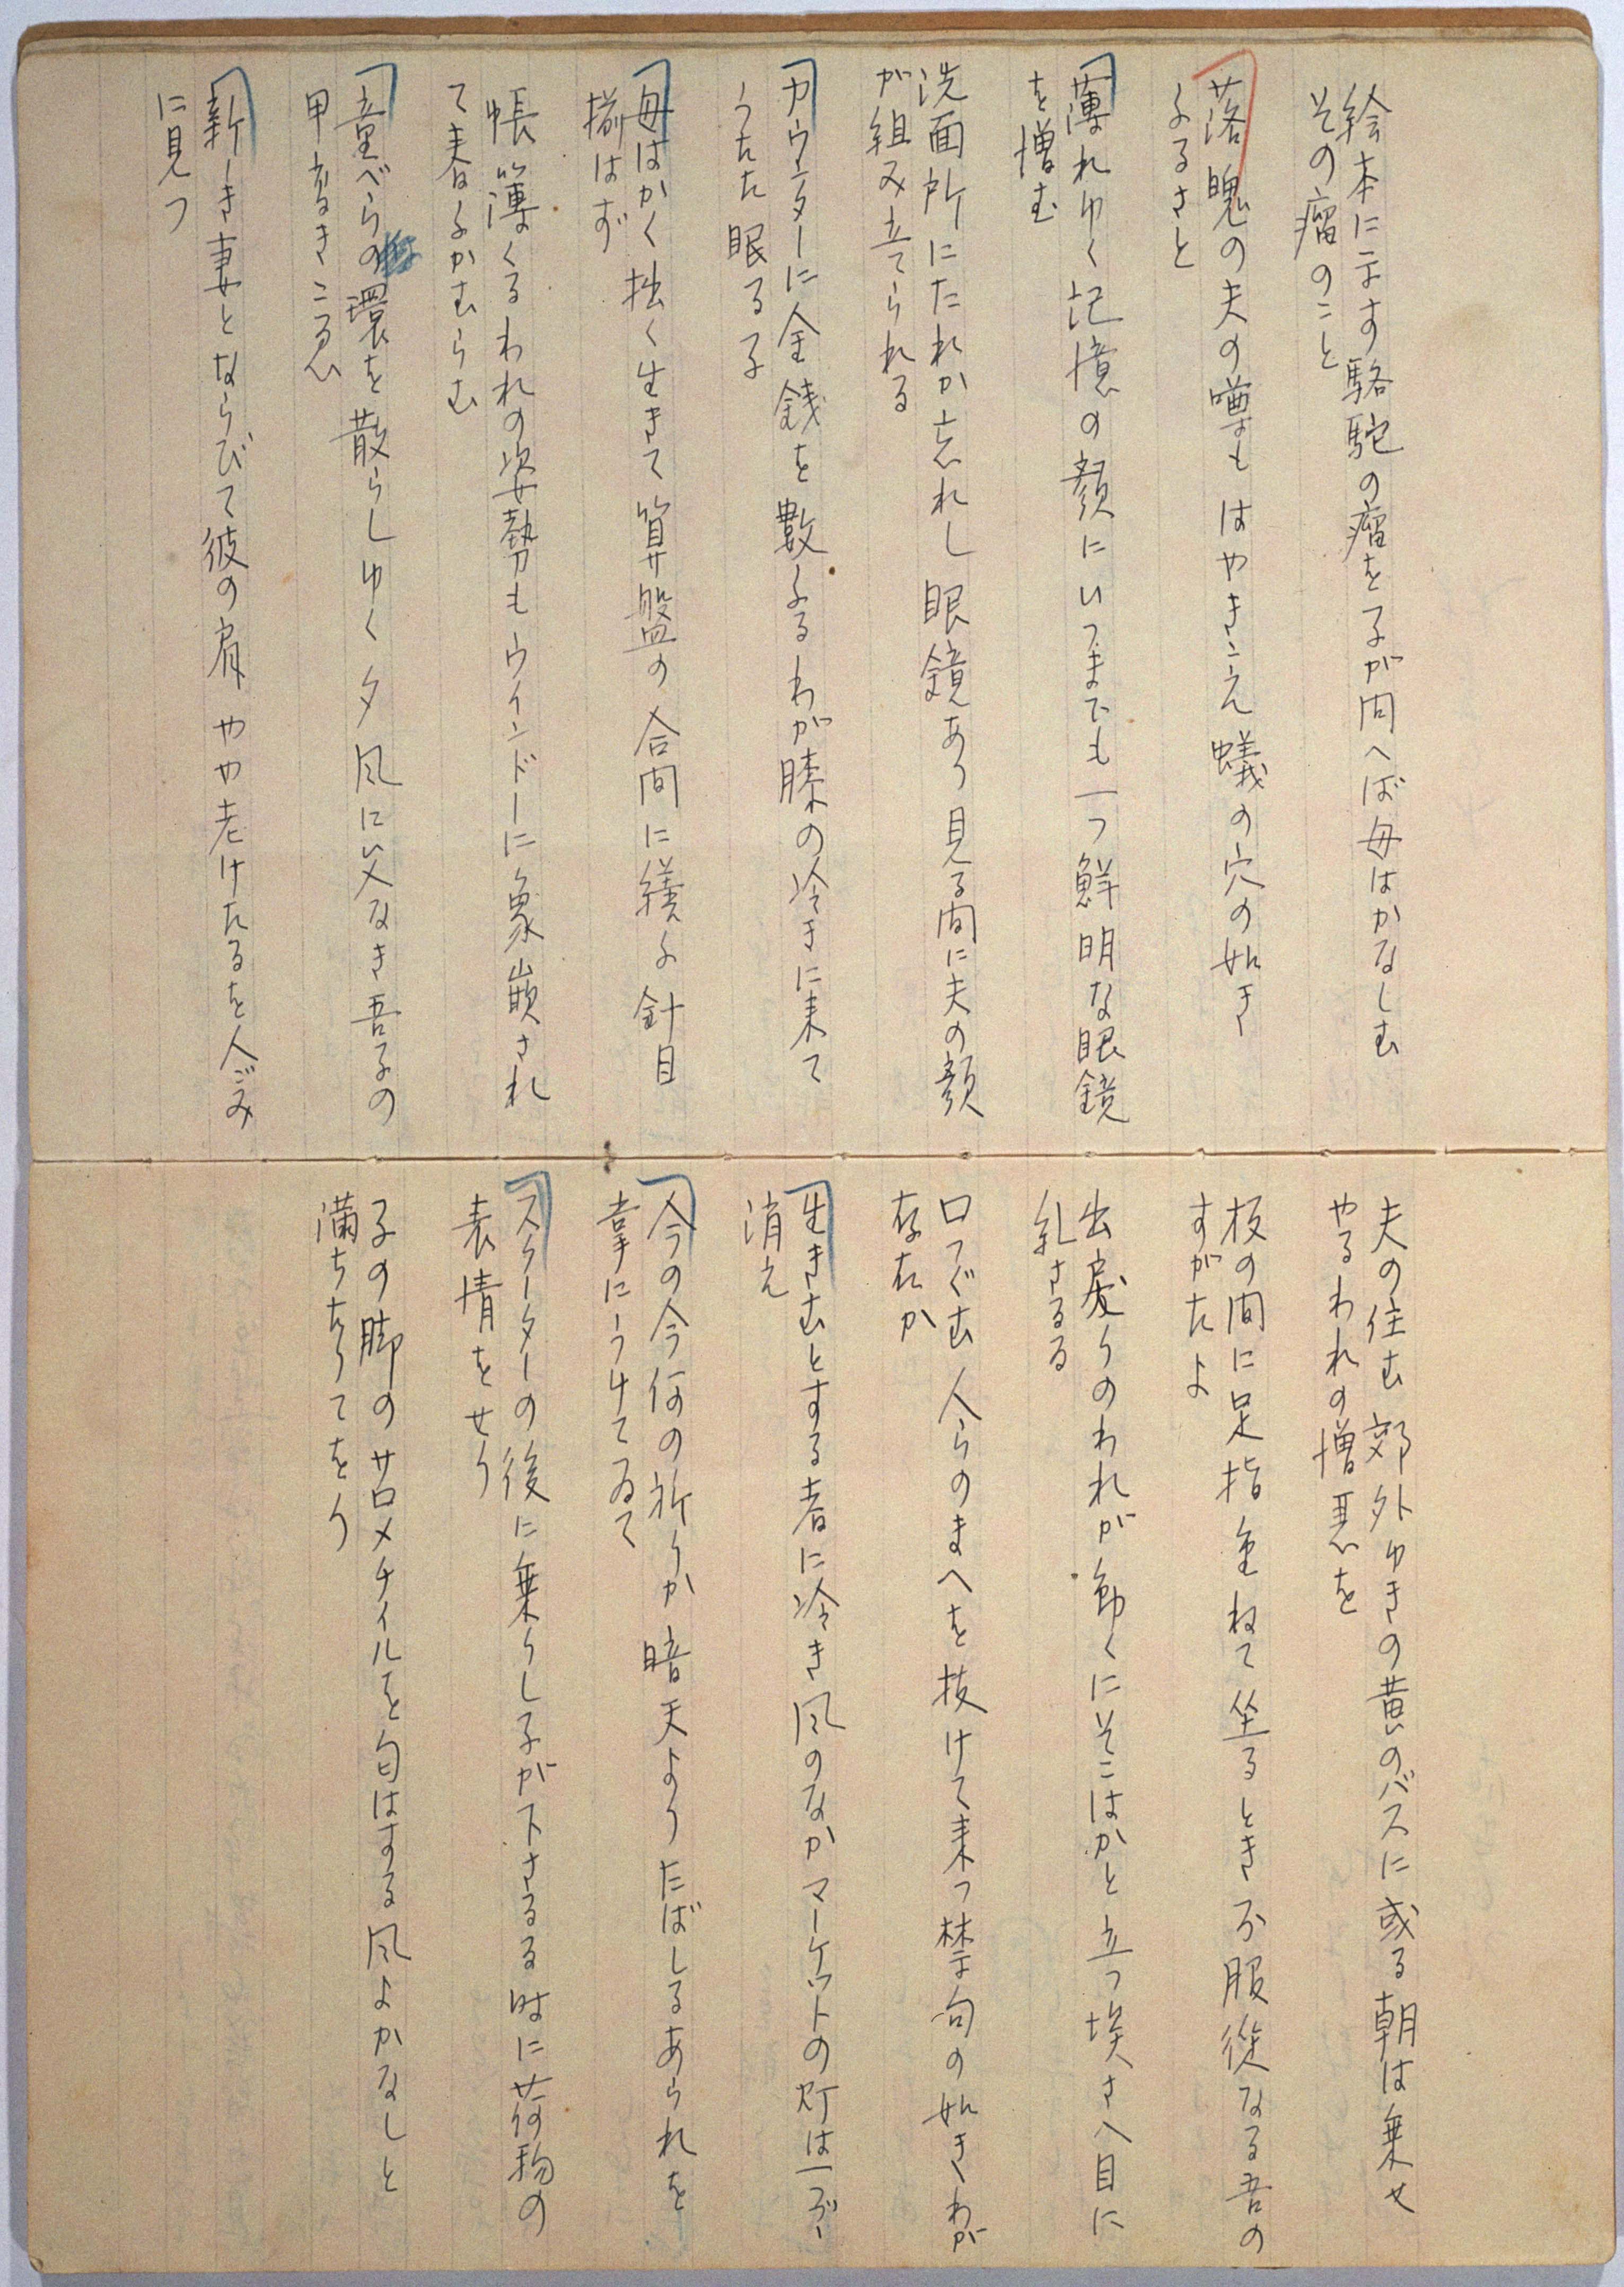 絵本に示す駱駝の瘤を子が問へば母はかなしむ
その瘤のこと
落魄の夫の噂もはやきこえ蟻の穴の如き
ふるさと
薄れゆく記憶の顔にいつまでも一つ鮮明な眼鏡
を増む
洗面所にたれか忘れし眼鏡あり見る間に夫の顔
が組み立てられる
カウンターに金銭を数ふるわが膝の冷きに来て
うたた眠る子
母はかく拙く生きて算盤の合間に繕ふ針目
揃はず
帳簿くるわれの姿勢もウインドーに象嵌され
て春ふかむらむ
童べらの環を散らしゆく夕風に父なき吾子の
甲高きこゑ
新しき妻とならびて彼の肩やや老けたるを人ごみ
に見つ
夫の住む郊外ゆきの黄のバスに或る朝は乗せ
やるわれの増悪を
板の間に足指重ねて坐るとき不服従なる吾の
すがたよ
出戻りのわれが動くにそこはかと立つ埃さへ目に
乱さるる
口つぐむ人らのまへを抜けて来つ禁句の如きわが
存在か
生きむとする者に冷き風のなかマーケットの灯は一つづつ
消え
今の今何の祈りか暗天よりたばしるあられを
掌にうけてゐて
スクーターの後に乗りし子が下さるる時に荷物の
表情をせり
子の脚のサロメチイルを匂はする風よかなしと
満ちたりてをり